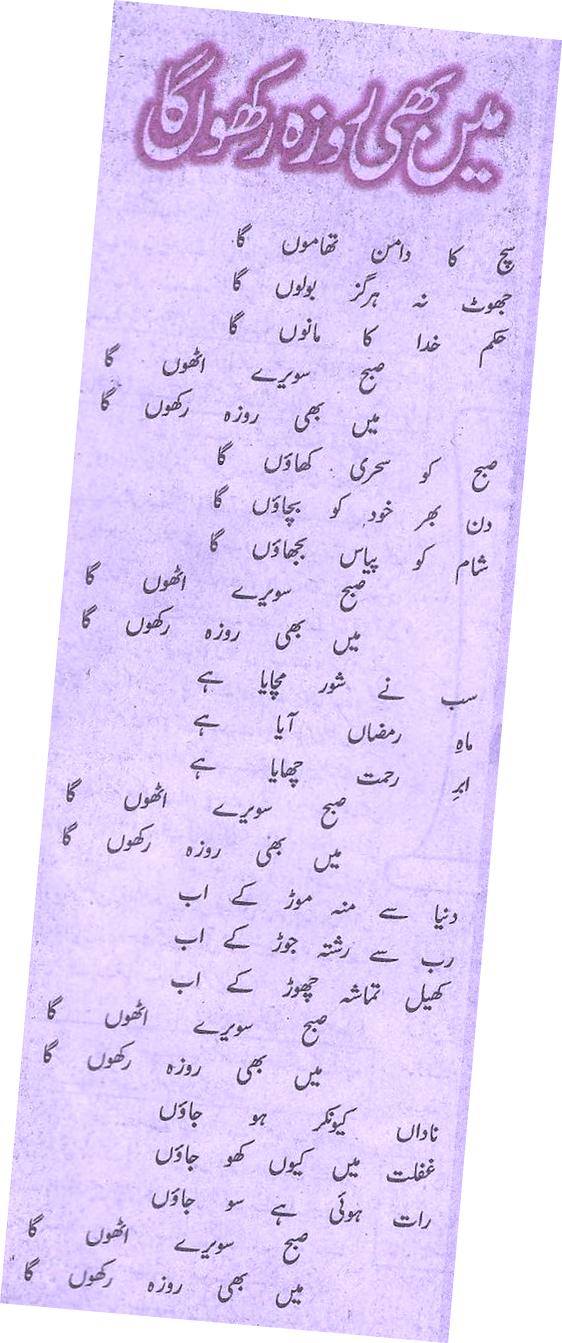 میں بھی روزہ رکھوں گا
سچ کا دامن تھاموں گا
جھوٹ نہ ہرگز بولوں گا
حکم خدا کا مانوں گا
صبح سویرے اٹھوں گا
میں بھی روزہ رکھوں گا
صبح کو سحری کھاؤں گا
دن بھر خود کو بچاؤں گا
شام کو پیاس بجھاؤں گا
صبح سویرے اٹھوں گا
میں بھی روزہ رکھوں گا
سب نے شور مچایا ہے
ماہِ رمضاں آیا ہے
ابرِ رحمت چھایا ہے
صبح سویرے اٹھوں گا
میں بھی روزہ رکھوں گا
دنیا سے منہ موڑ کے اب
رب سے رشتہ جوڑ کے اب
کھیل تماشہ چھوڑ کے اب
صبح سویرے اٹھوں گا
میں بھی روزہ رکھوں گا
ناداں کیونکر ہو جاؤں
غفلت میں کیوں کھو جاؤں
رات ہوئی ہے سو جاؤں
صبح سویرے اٹھوں گا
میں بھی روزہ رکھوں گا